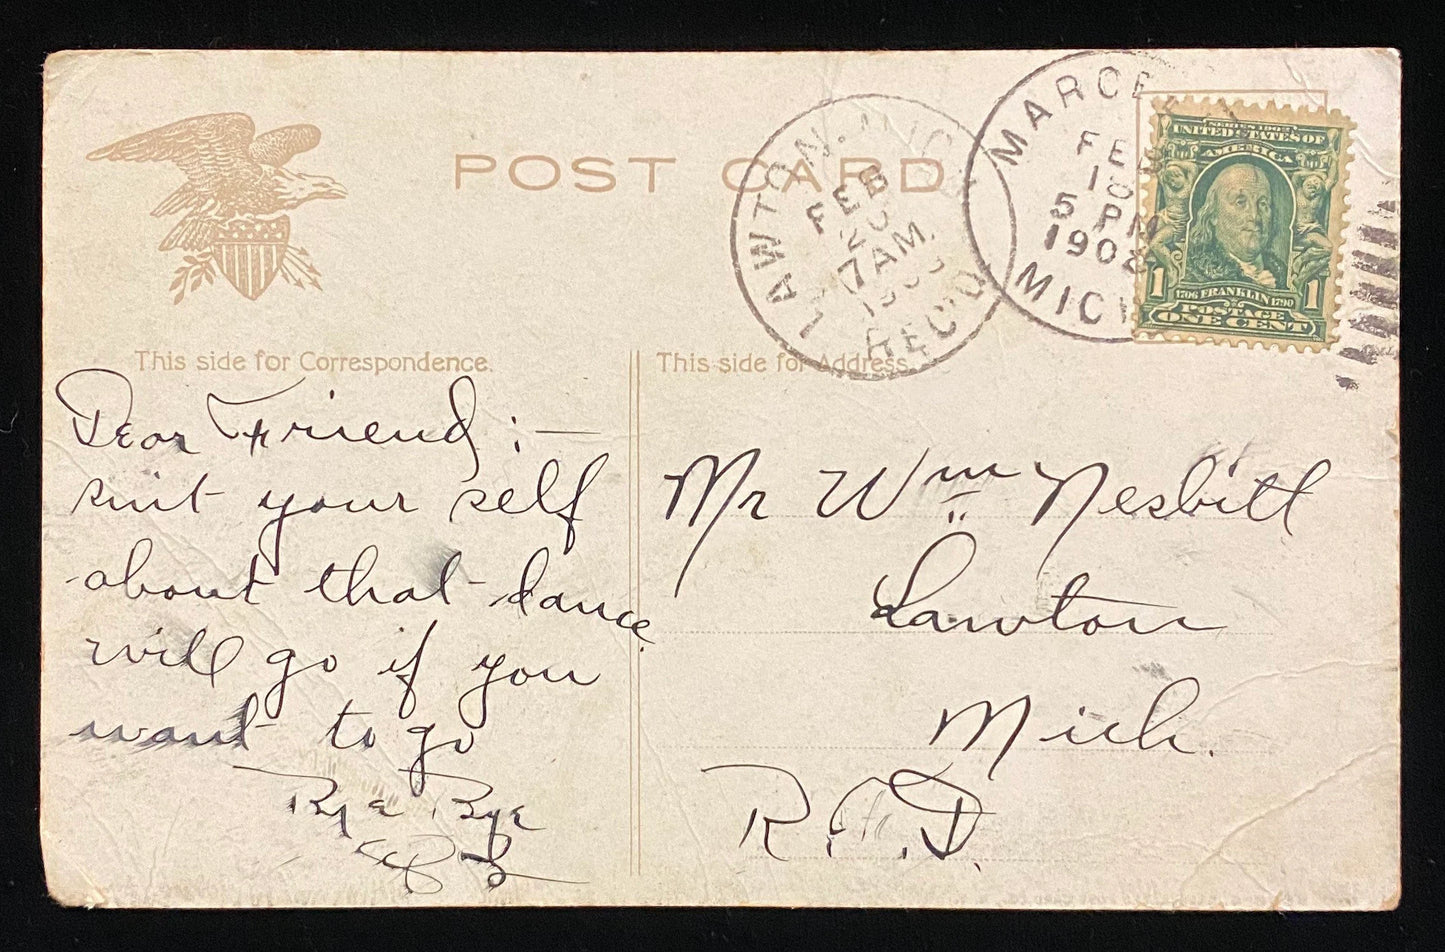 POST CARD
LAWTON. MICH.
FEB
20
7 AM.
REC'D
MARCE
FE
5 PM
190
MIC
SERIES 1902
UNITED STATES OF
AMERICA
1 1
1706 FRANKLIN 1790
POSTAGE
ONE CENT
This side for Correspondence.
This side for Address.
Dear Friend :—
suit your self
about that dance
will go if you
want to go
Bye Bye
Mr Wm Nesbitt
Lawton
Mich.
R.F.D.